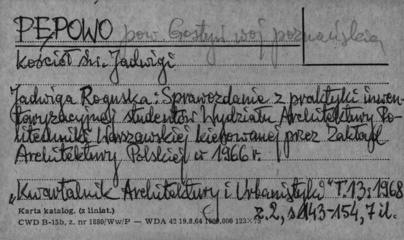 PĘPOWO pow. Gostyń woj. poznańskie
Kościół św. Jadwigi
Jadwiga Roguska: Sprawozdanie z praktyki inwen-
taryzacyjnej studentów Wydziału Architektury Po-
litechniki Warszawskiej kierowanej przez Zakład
Architektury Polskiej w 1966 r.
„Kwartalnik Architektury i Urbanistyki" T. 13: 1968
z. 2, s. 143-154, 7 il.
Karta katalog. (z liniat.)
CWD B-15b, z. nr 1880/Ww/P — WDA 42 19.8.64 000 123×75